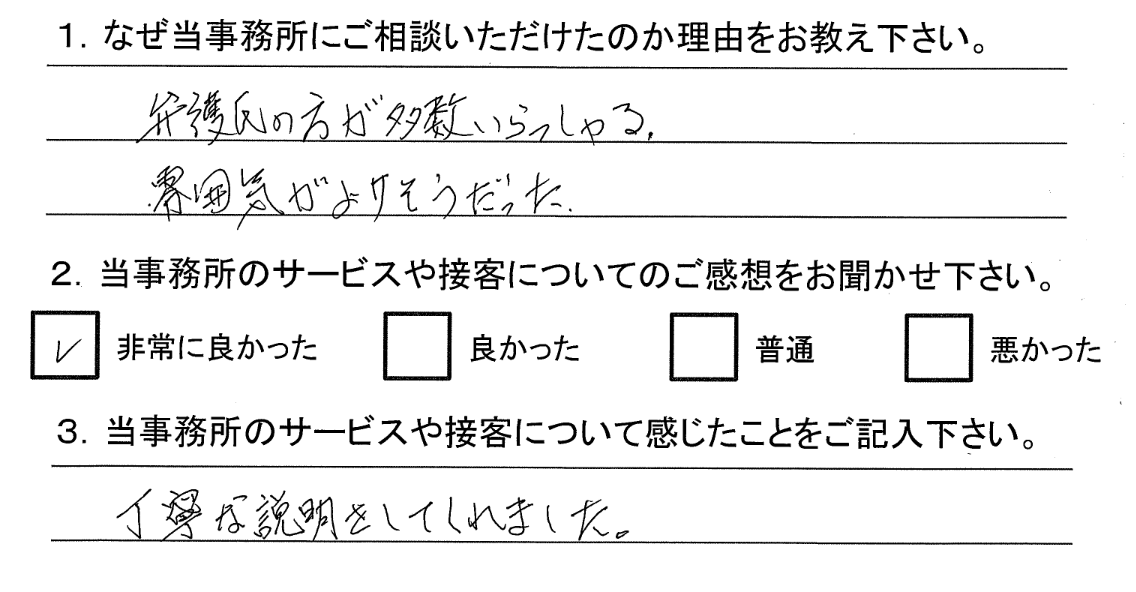 1. なぜ当事務所にご相談いただけたのか理由をお教え下さい。
弁護氏の方が多数いらっしゃる.
雰囲気がよけそうだった.
2. 当事務所のサービスや接客についてのご感想をお聞かせ下さい。
✓ 非常に良かった 良かった 普通 悪かった
3. 当事務所のサービスや接客について感じたことをご記入下さい。
丁寧な説明をしてくれました。